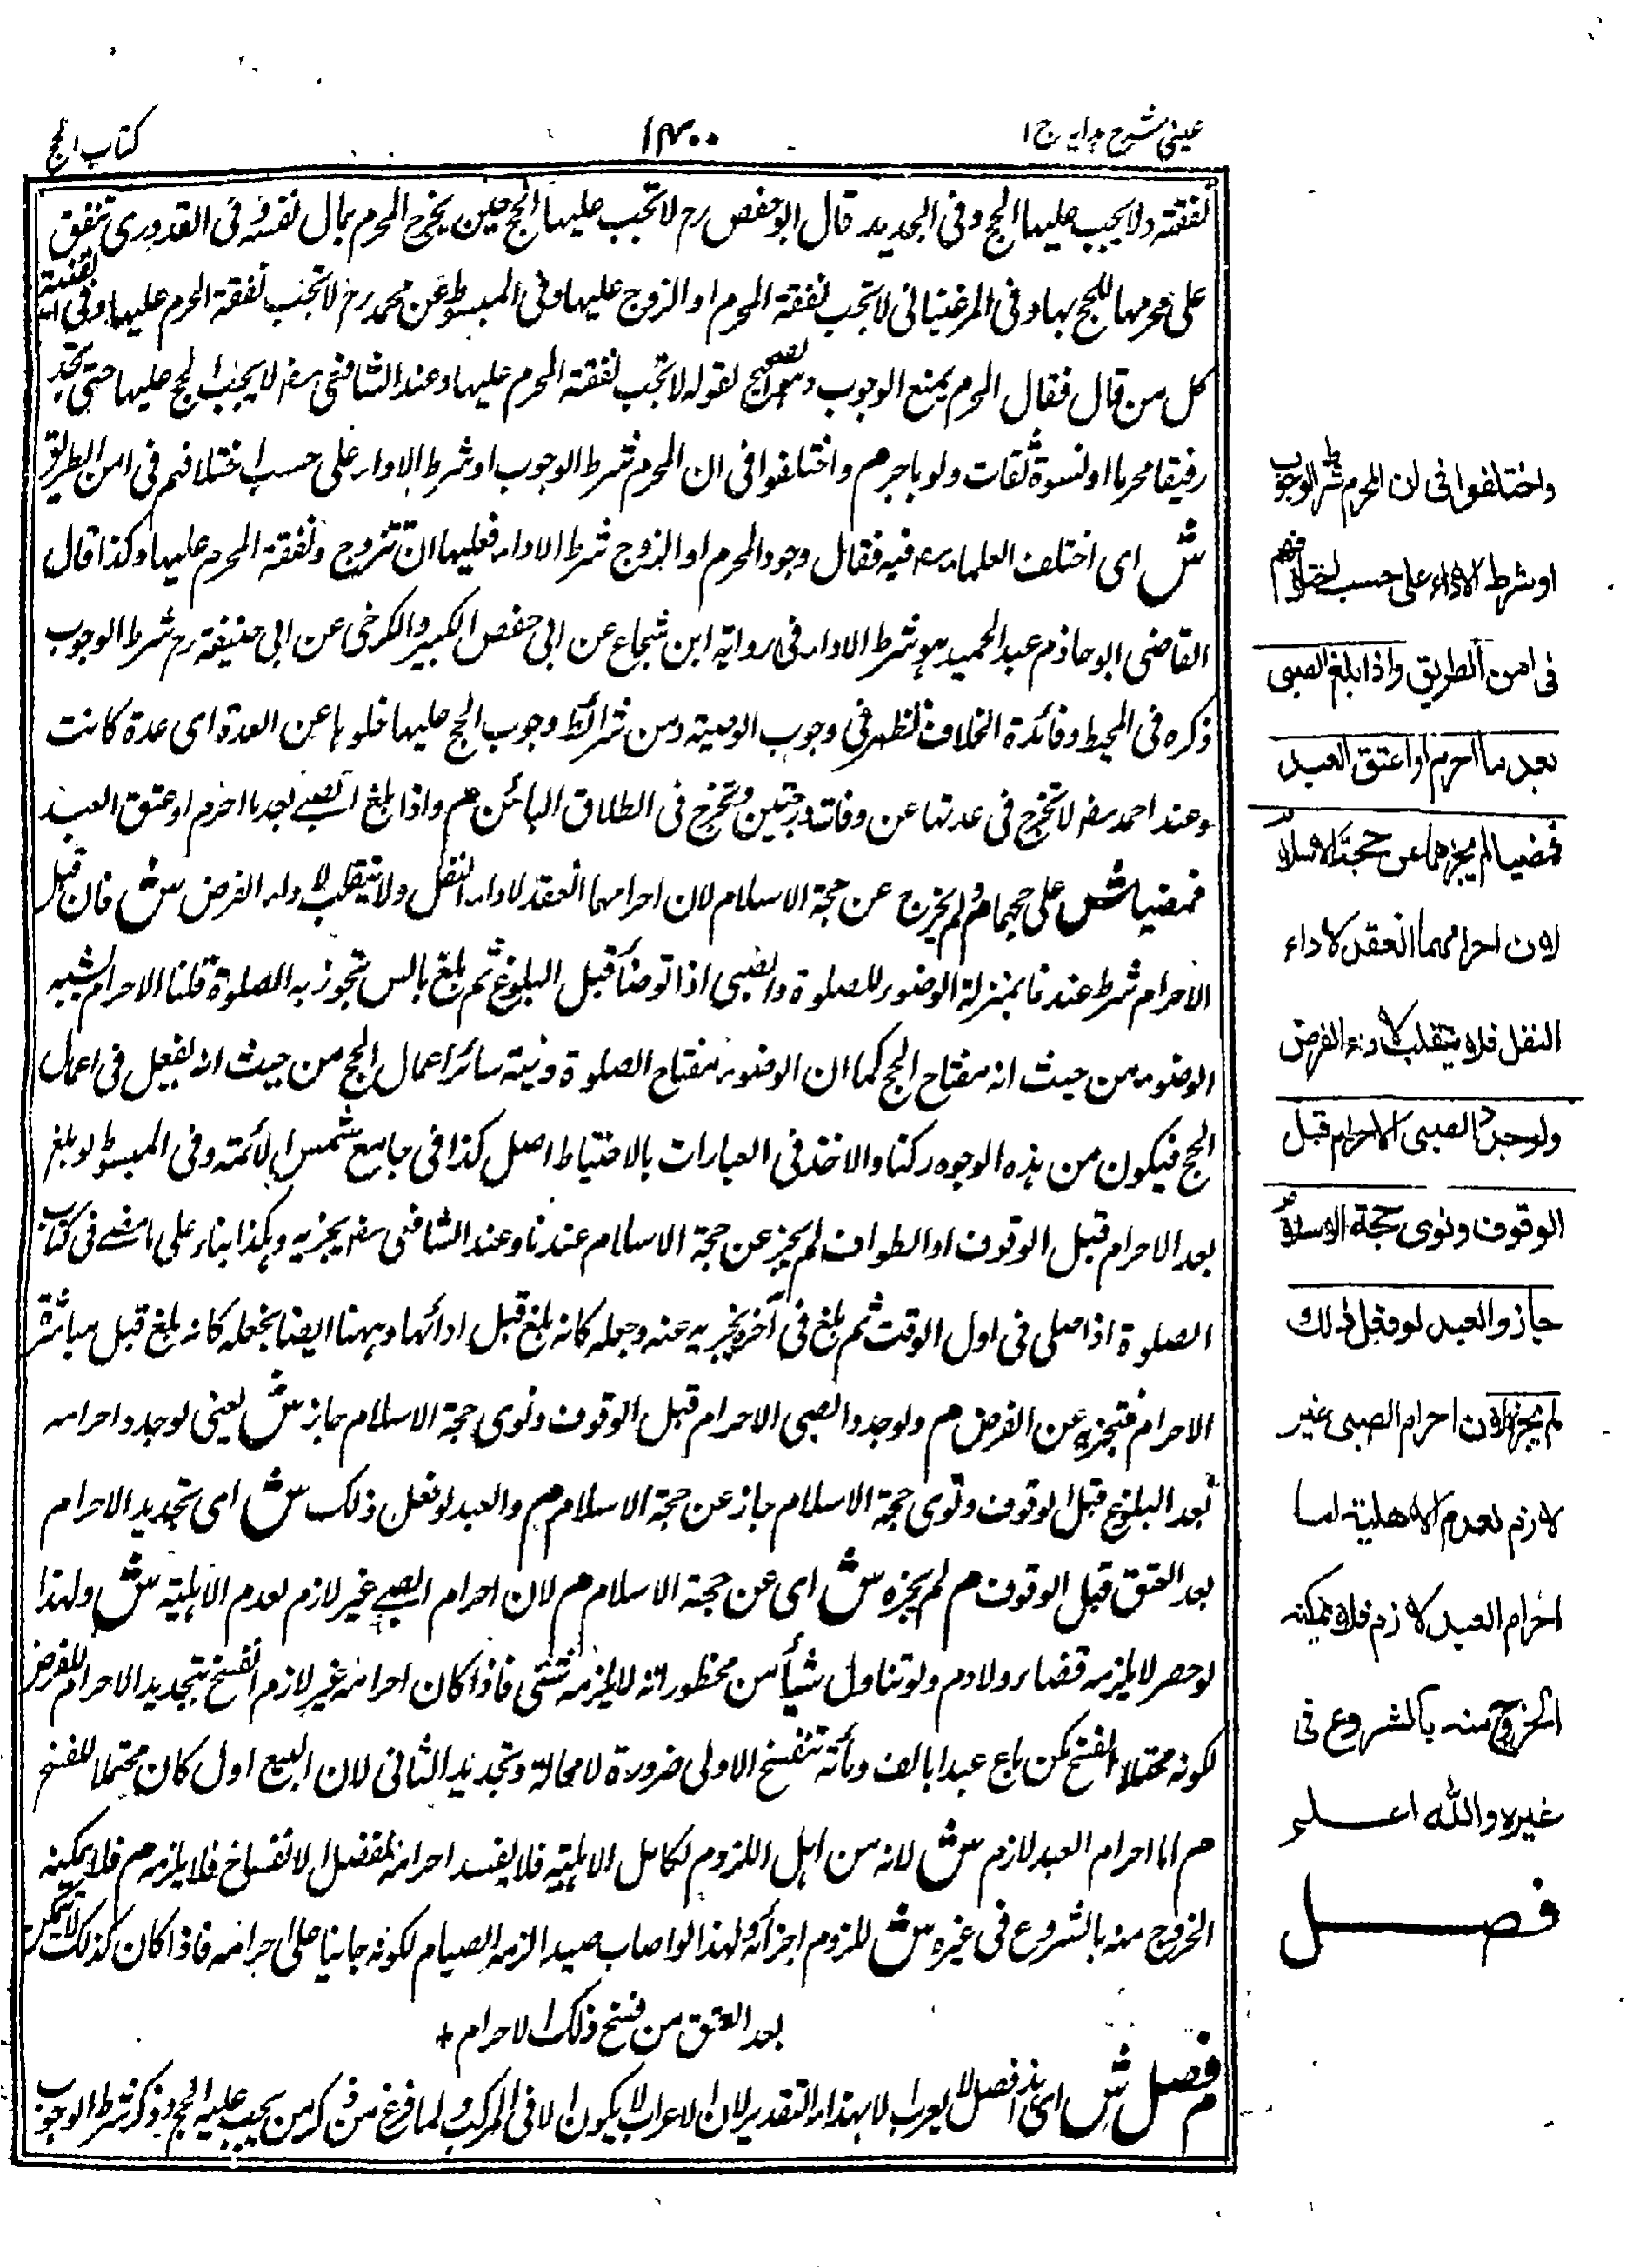 عینی شرح ہدایہ ج ۱
۱۴۰۰
کتاب الحج
نفقته ولا يجب عليها الحج وفى التجديد قال ابو حفص رح لا تجب عليها الحج حين يخرج المحرم بمال نفسه وفى القدورى تنفق
على محرمها للحج بها وفى المرغينانى لا تجب نفقة المحرم او الزوج عليها وفى المبسوط عن محمد رح لا تجب نفقة المحرم عليها وفى القنية
كل من قال فقال المحرم يمنع الوجوب وهو الصحيح لقوله لا تجب نفقة المحرم عليها وعند الشافعى رض لا يجب الحج عليها حتى تجد
رفيقا محرما او نسوة ثقات ولو باجر م واختلفوا فى ان المحرم شرط الوجوب او شرط الاداء على حسب اختلافهم فى امن الطريق
ش اى اختلف العلماء رح فيه فقال وجود المحرم او الزوج شرط الاداء فعليها ان تتزوج ونفقة المحرم عليها وكذا قال
القاضى ابو حازم عبد الحميد هو شرط الاداء فى رواية ابن شجاع عن ابى حفص الكبير والكرخى عن ابى حنيفة رح شرط الوجوب
ذكره فى المحيط وفائدة الخلاف تظهر فى وجوب الوصية ومن شرائط وجوب الحج عليها خلوها عن العدة اى عدة كانت
وعند احمد رض لا تخرج فى عدتها عن وفات وتخرج فى الطلاق البائن م واذا بلغ الصبے بعد ما احرم او عتق العبد
فمضيا ش على حجهما م لم يخرج عن حجة الاسلام لان احرامهما انعقد لاداء النفل ولا ينقلب لاداء الفرض ش فان قيل
الاحرام شرط عندنا بمنزلة الوضوء للصلوة والصبى اذا توضأ قبل البلوغ ثم بلغ بالسن تجوز به الصلوة قلنا الاحرام يشبه
الوضوء من حيث انه مفتاح الحج كما ان الوضوء مفتاح الصلوة ونية سائر اعمال الحج من حيث انه يفعل فى اعمال
الحج فيكون من هذه الوجوه ركنا والاخذ فى العبارات بالاحتياط اصل كذا فى جامع شمس الائمة وفى المبسوط لو بلغ
بعد الاحرام قبل الوقوف او الطواف لم يجز عن حجة الاسلام عندنا وعند الشافعى رض يجزيه وهكذا بناء على ما مضے فى كتاب
الصلوة اذا صلى فى اول الوقت ثم بلغ فى آخره يجزيه عنه وجعله كانه بلغ قبل ادائها وههنا ايضا يجعله كانه بلغ قبل مباشرة
الاحرام فتجزيه عن الفرض م ولو جدد الصبى الاحرام قبل الوقوف ونوى حجة الاسلام جاز ش يعنى لو جدد احرامه
بعد البلوغ قبل الوقوف ونوى حجة الاسلام جاز عن حجة الاسلام م والعبد لو فعل ذلك ش اى تجديد الاحرام
بعد العتق قبل الوقوف م لم يجزه ش اى عن حجة الاسلام م لان احرام الصبے غير لازم لعدم الاهلية ش ولهذا
لو حصر لا يلزمه قضاء ولا دم ولو تناول شيأ من محظوراته لا يلزمه شئى فاذا كان احرامه غير لازم انفسخ بتجديد الاحرام للفرض
لكونه محتملا الفسخ كمن باع عبدا بالف ومأته تنفسخ الاولى ضرورة لا محالة وتجديد الثانى لان البيع اول كان محتملا للفسخ
م اما احرام العبد لازم ش لانه من اهل اللزوم لكامل الاهلية فلا يفسد احرامه الانفساخ فلا يلزمه م فلا يمكنه
الخروج منه بالشروع فى غيره ش للزوم اجزأه ولهذا لو اصاب صيدا لزمه الصيام لكونه جانيا على احرامه فاذا كان كذلك لا يتمكن
بعد العتق من فسخ ذلك الاحرام +
م فصل ش اى هذا فصل لا يعرب الا بهذا التقدير لان الاعراب لا يكون الا فى المركب ولما فرغ من ذكر من يجب عليه الحج وذكر شرط الوجوب
واختلفوا فى ان المحرم شرط الوجوب
او شرط الاداء على حسب اختلافهم
فى امن الطريق واذا بلغ الصبى
بعد ما احرم او اعتق العبد
فمضيا لم يجزهما عن حجة الاسلام
لان احرامهما انعقد لاداء
النفل فلا ينقلب لاداء الفرض
ولو جدد الصبى الاحرام قبل
الوقوف ونوى حجة الاسلام
جاز والعبد لو فعل ذلك
لم يجز لان احرام الصبى غير
لازم لعدم الاهلية اما
احرام العبد لازم فلا يمكنه
الخروج منه بالشروع فى
غيره والله اعلم
فصل